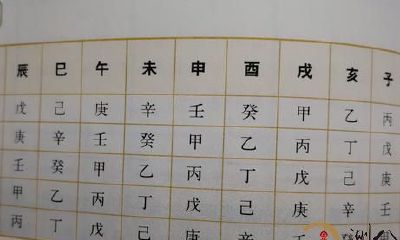 辰 巳 午 未 申 酉 戌 亥 子
戊 己 庚 辛 壬 癸 甲 乙 丙
庚 辛 壬 癸 甲 乙 丙 丁 戊
壬 癸 甲 乙 丙 丁 戊 己 庚
甲 乙 丙 丁 戊 己 庚 辛 壬
丙 丁 戊 己 庚 辛 壬 癸